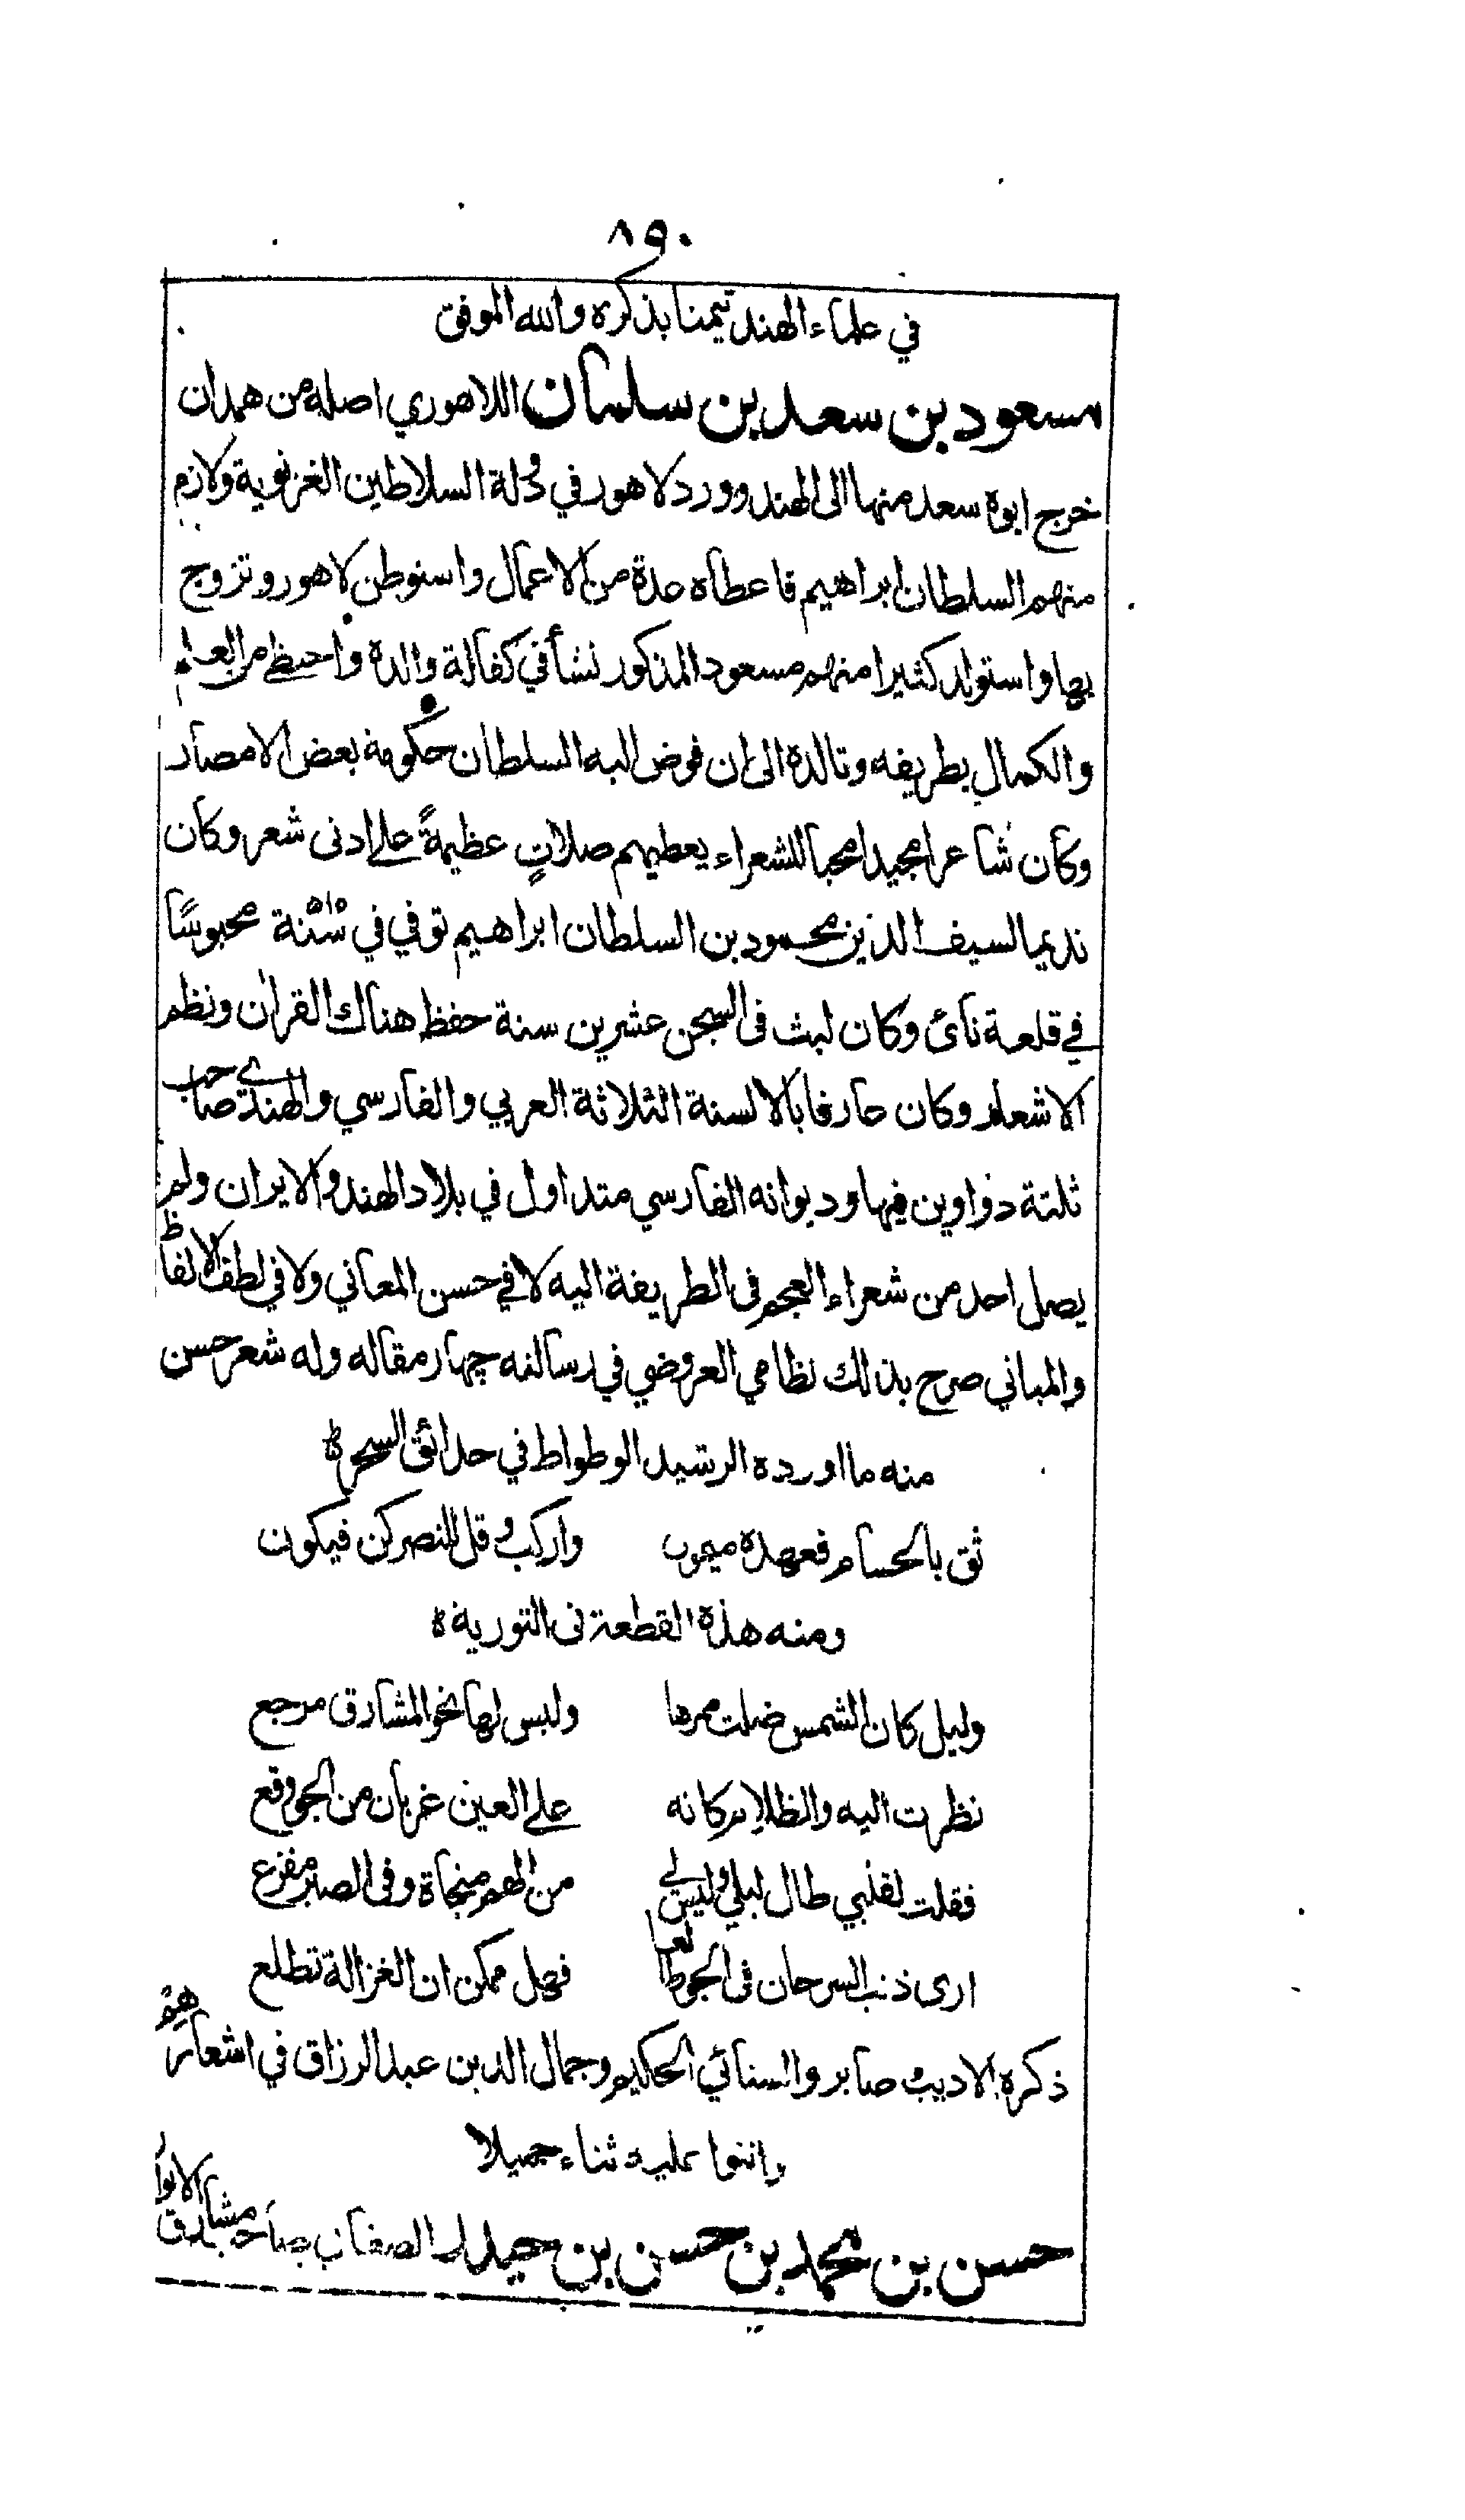 ٨٩٠
في علماء الهند تيمنا بذكره والله الموفق
مسعود بن سعد بن سلمان اللاهوري اصله من همدان
خرج ابوه سعد منها الى الهند وورد لاهور في دولة السلاطين الغزنوية ولازم
منهم السلطان ابراهيم فاعطاه عدة من الاعمال واستوطن لاهور وتزوج
بها واستولد كثيرا منهم مسعود المذكور نشأ في كفالة والده واحتظ من العلم
والكمال بطريفه وتالده الى ان فوض اليه السلطان حكومة بعض الامصار
وكان شاعرا مجيدا محبا للشعراء يعطيهم صلاتٍ عظيمةً على ادنى شعر وكان
نديما لسيف الدين محمود بن السلطان ابراهيم توفي في سنة ٥١٥ محبوسًا
في قلعة نائ وكان لبث في السجن عشرين سنة حفظ هناك القران ونظم
الاشعار وكان عارفا بالالسنة الثلاثة العربي والفارسي والهندي صاحب
ثلثة دواوين فيها وديوانه الفارسي متداول في بلاد الهند والايران ولم
يصل احد من شعراء العجم في الطريقة اليه لا في حسن المعاني ولا في لطف الالفاظ
والمباني صرح بذلك نظامي العروضي في رسالته چهار مقاله وله شعر حسن
منه ما اورده الرشيد الوطواط في حدائق السحر ه
ثق بالحسام فعهده ميمون واركب وقل للنصر كن فيكون
ومنه هذه القطعة في التورية ه
وليل كان الشمس ضلت ممرها وليس لها نحو المشارق مرجع
نظرت اليه والظلام كانه على العين غربان من الجو وقع
فقلت لقلبي طال ليلي وليس لي من الهم منجاة وفي الصبر مفزع
ارى ذنب السرحان في الجو طالعا فهل ممكن ان الغزالة تطلع
ذكره الاديب صابر والسنائي الحكيم وجمال الدين عبد الرزاق في اشعارهم
واثنوا عليه ثناء جميلا
حسن بن محمد بن حسن بن حيدر الصغاني صاحب مشارق الانوار